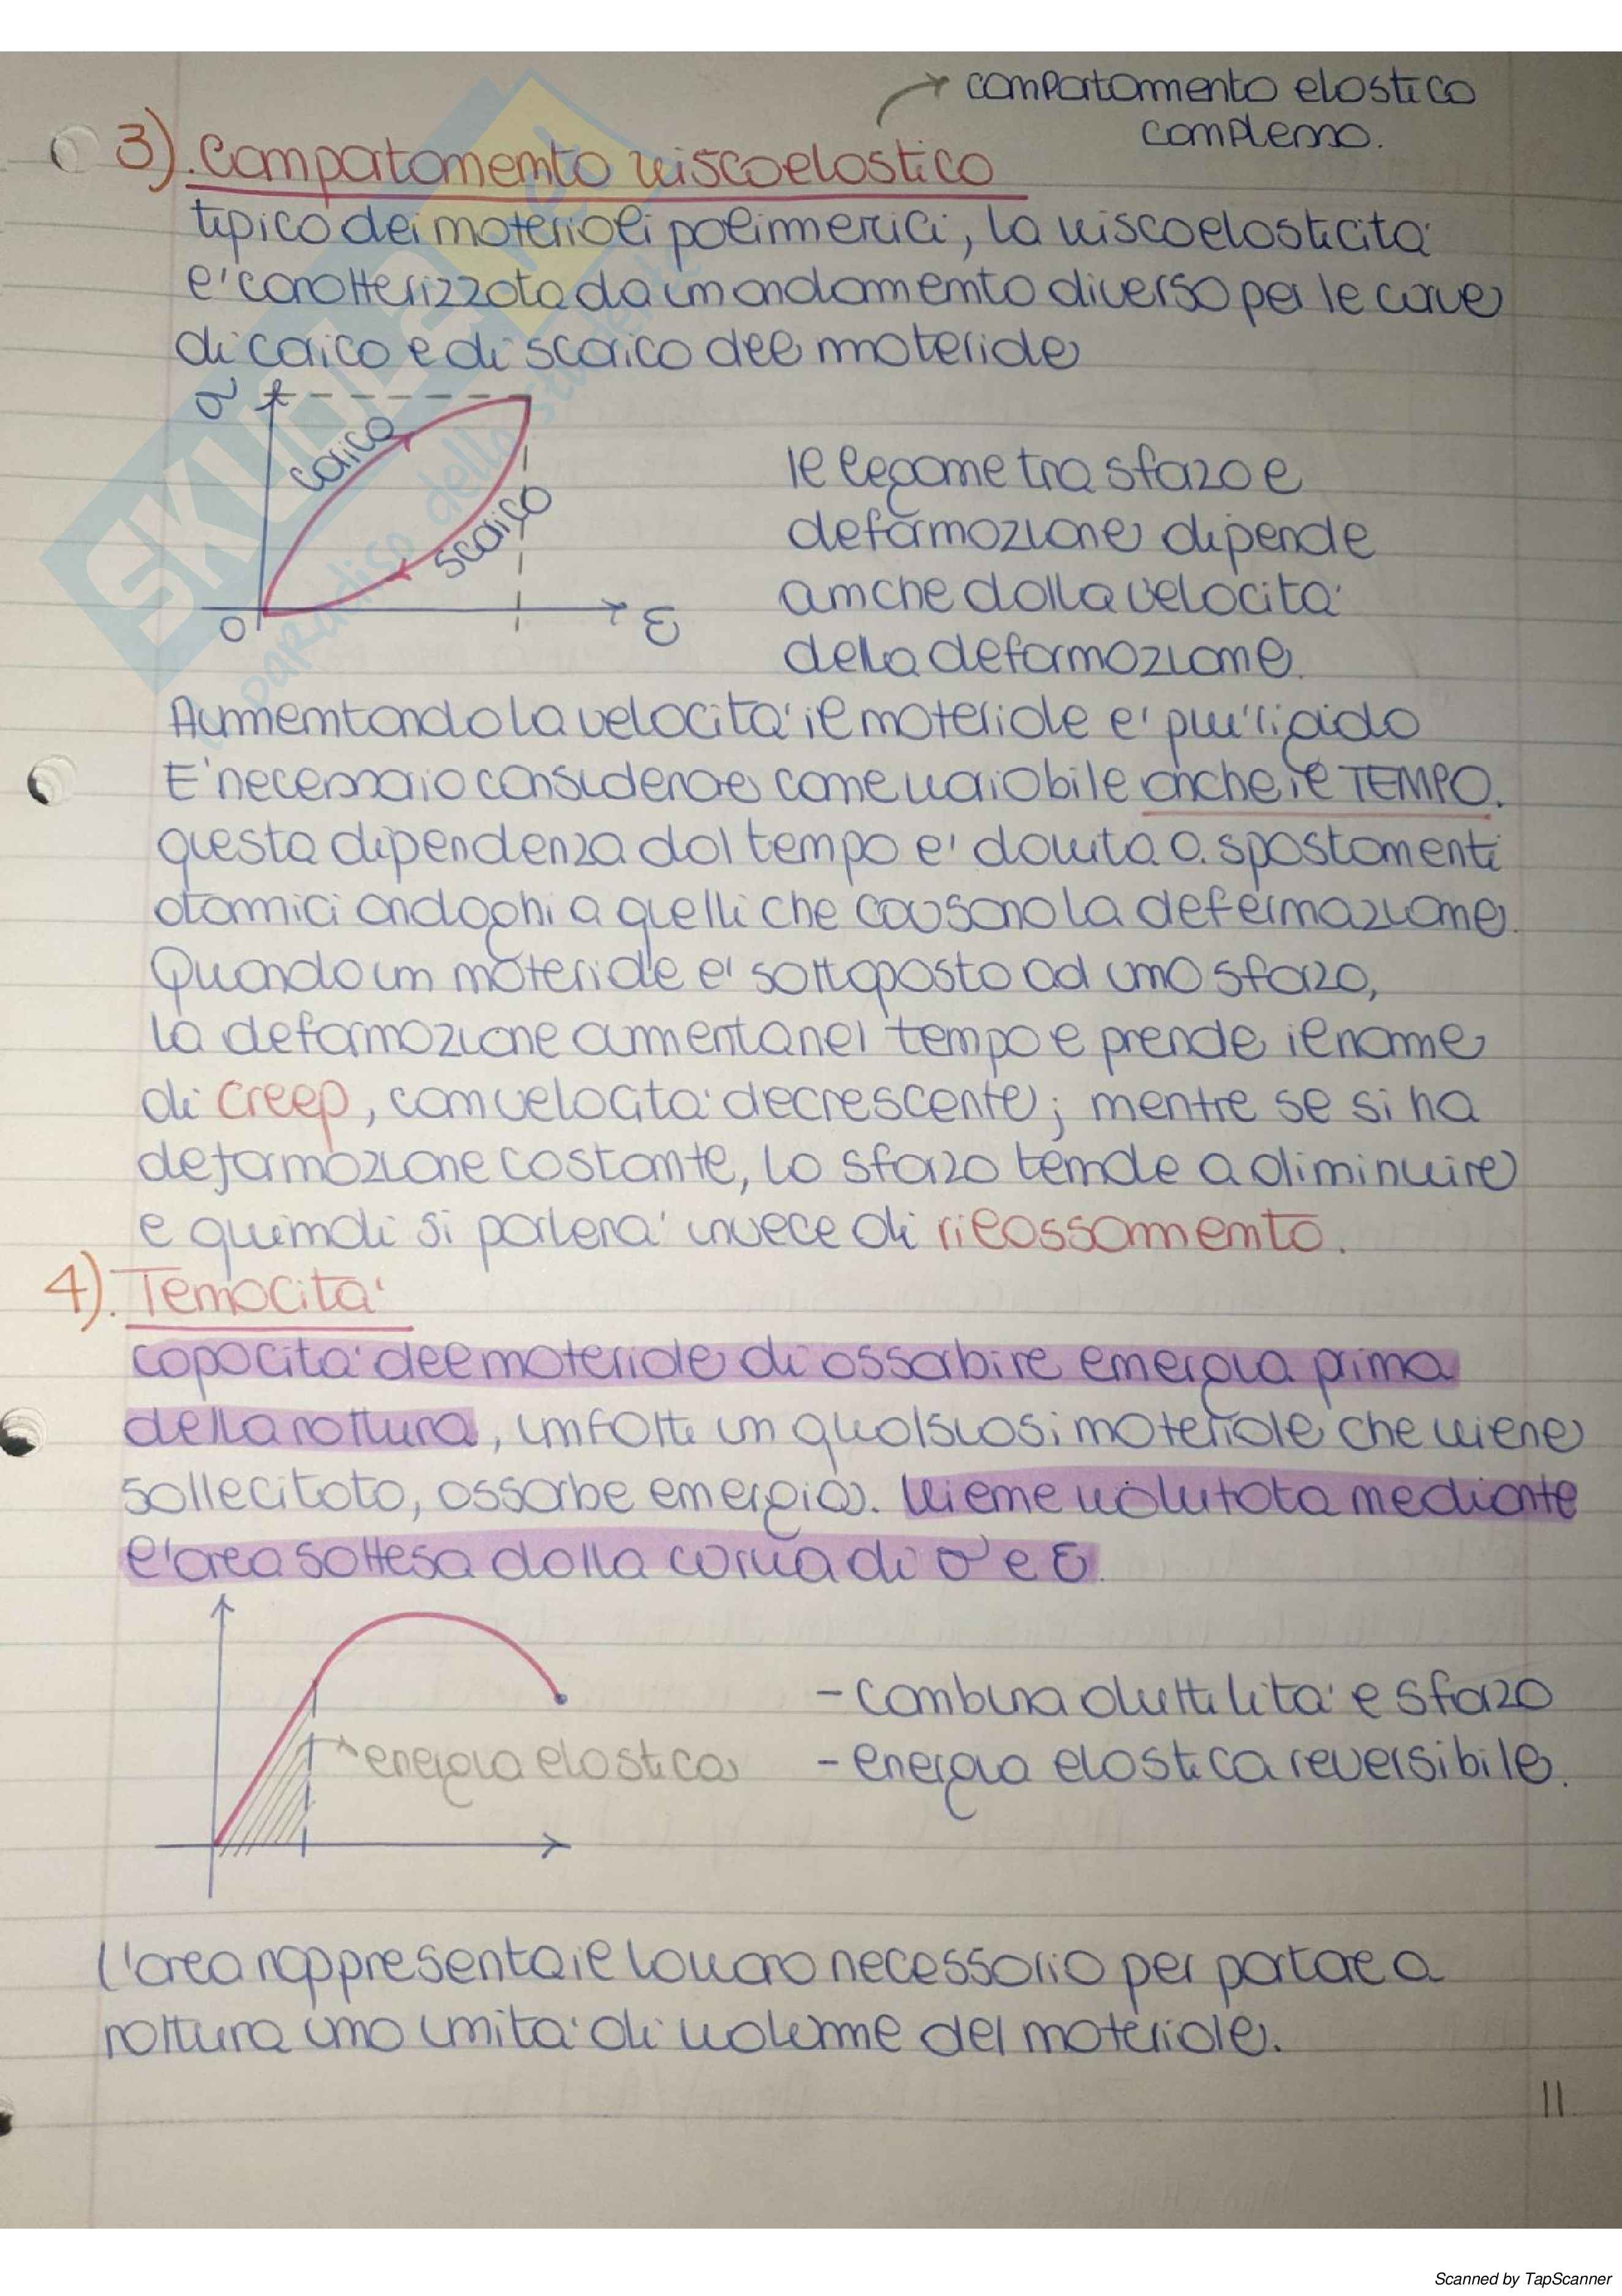 comportamento elastico
complesso.
3). Comportamento viscoelastico
tipico dei materiali polimerici, la viscoelasticità
e' caratterizzata da un andamento diverso per le curve
di carico e di scarico del materiale
σ
carico
scarico
0
ε
Il legame tra sforzo e
deformazione dipende
anche dalla velocità
della deformazione.
Aumentando la velocità il materiale e' più rigido
E' necessario considerare come variabile anche il TEMPO.
questa dipendenza dal tempo e' dovuta a spostamenti
atomici analoghi a quelli che causano la deformazione.
Quando un materiale e' sottoposto ad uno sforzo,
la deformazione aumenta nel tempo e prende il nome
di creep, con velocità decrescente; mentre se si ha
deformazione costante, lo sforzo tende a diminuire
e quindi si parlerà invece di rilassamento.
4). Tenacità
capacità del materiale di assorbire energia prima
della rottura, infatti un qualsiasi materiale che viene
sollecitato, assorbe energia. Viene valutata mediante
l'area sottesa dalla curva di σ e ε.
energia elastica
- combina duttilità e sforzo
- energia elastica reversibile.
L'area rappresenta il lavoro necessario per portare a
rottura una unità di volume del materiale.
11
SKUOLA.net
il paradiso dello studente
Scanned by TapScanner